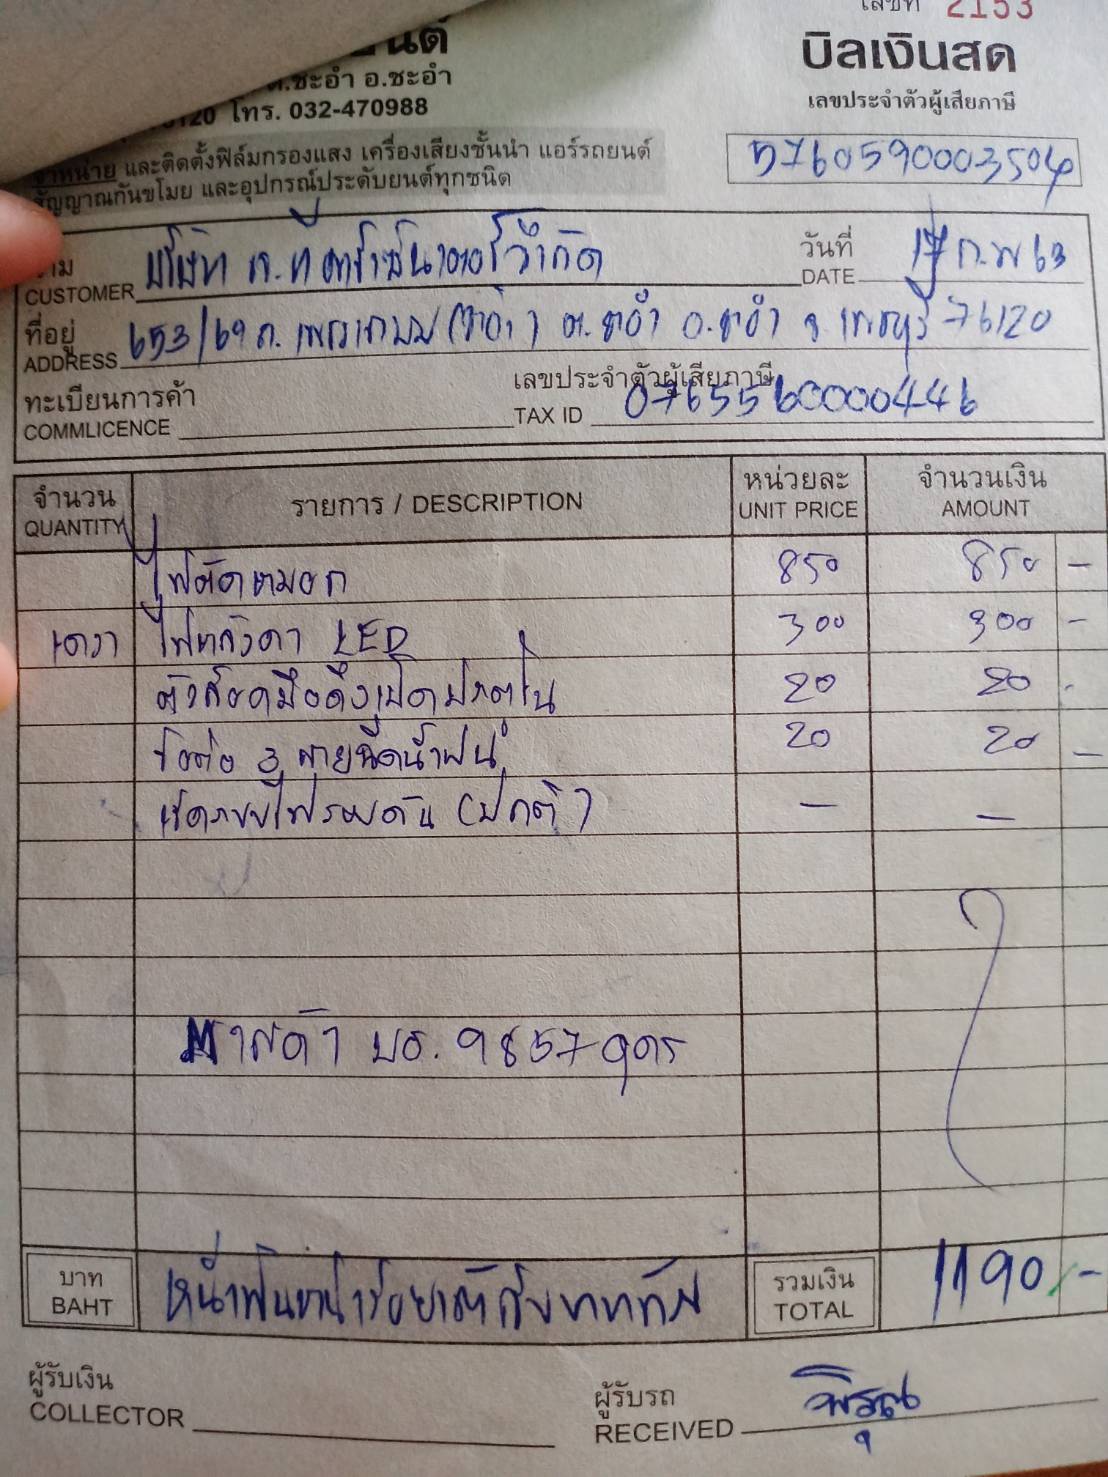 เลขที่ 2153
ยนต์
บิลเงินสด
ต.ชะอำ อ.ชะอำ
เลขประจำตัวผู้เสียภาษี
โทร. 032-470988
5760590003504
จำหน่าย และติดตั้งฟิล์มกรองแสง เครื่องเสียงชั้นนำ แอร์รถยนต์
สัญญาณกันขโมย และอุปกรณ์ประดับยนต์ทุกชนิด
CUSTOMER บริษัท วันที่ DATE 17 ก.พ 63
ที่อยู่ ADDRESS 653/69 ถ. ต.ชะอำ อ.ชะอำ จ.เพชรบุรี 76120
ทะเบียนการค้า COMMLICENCE เลขประจำตัวผู้เสียภาษี TAX ID 0765560000446
จำนวน QUANTITY รายการ / DESCRIPTION หน่วยละ UNIT PRICE จำนวนเงิน AMOUNT
ไฟตัดหมอก 850 850 -
ไฟหลังคา LED 300 300 -
20 20 -
ข้อต่อ 3 สายฉีดน้ำฝน 20 20 -
เช็คระบบไฟรอบคัน (ปกติ) - -
มาสด้า บธ. 9857 อุดร
บาท BAHT หนึ่งพันหนึ่งร้อยเก้าสิบบาทถ้วน รวมเงิน TOTAL 1190 -
ผู้รับเงิน COLLECTOR ผู้รับรถ RECEIVED